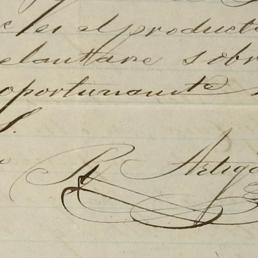 es el product
elantare sobr
oportunamente
S.
R. Artiga